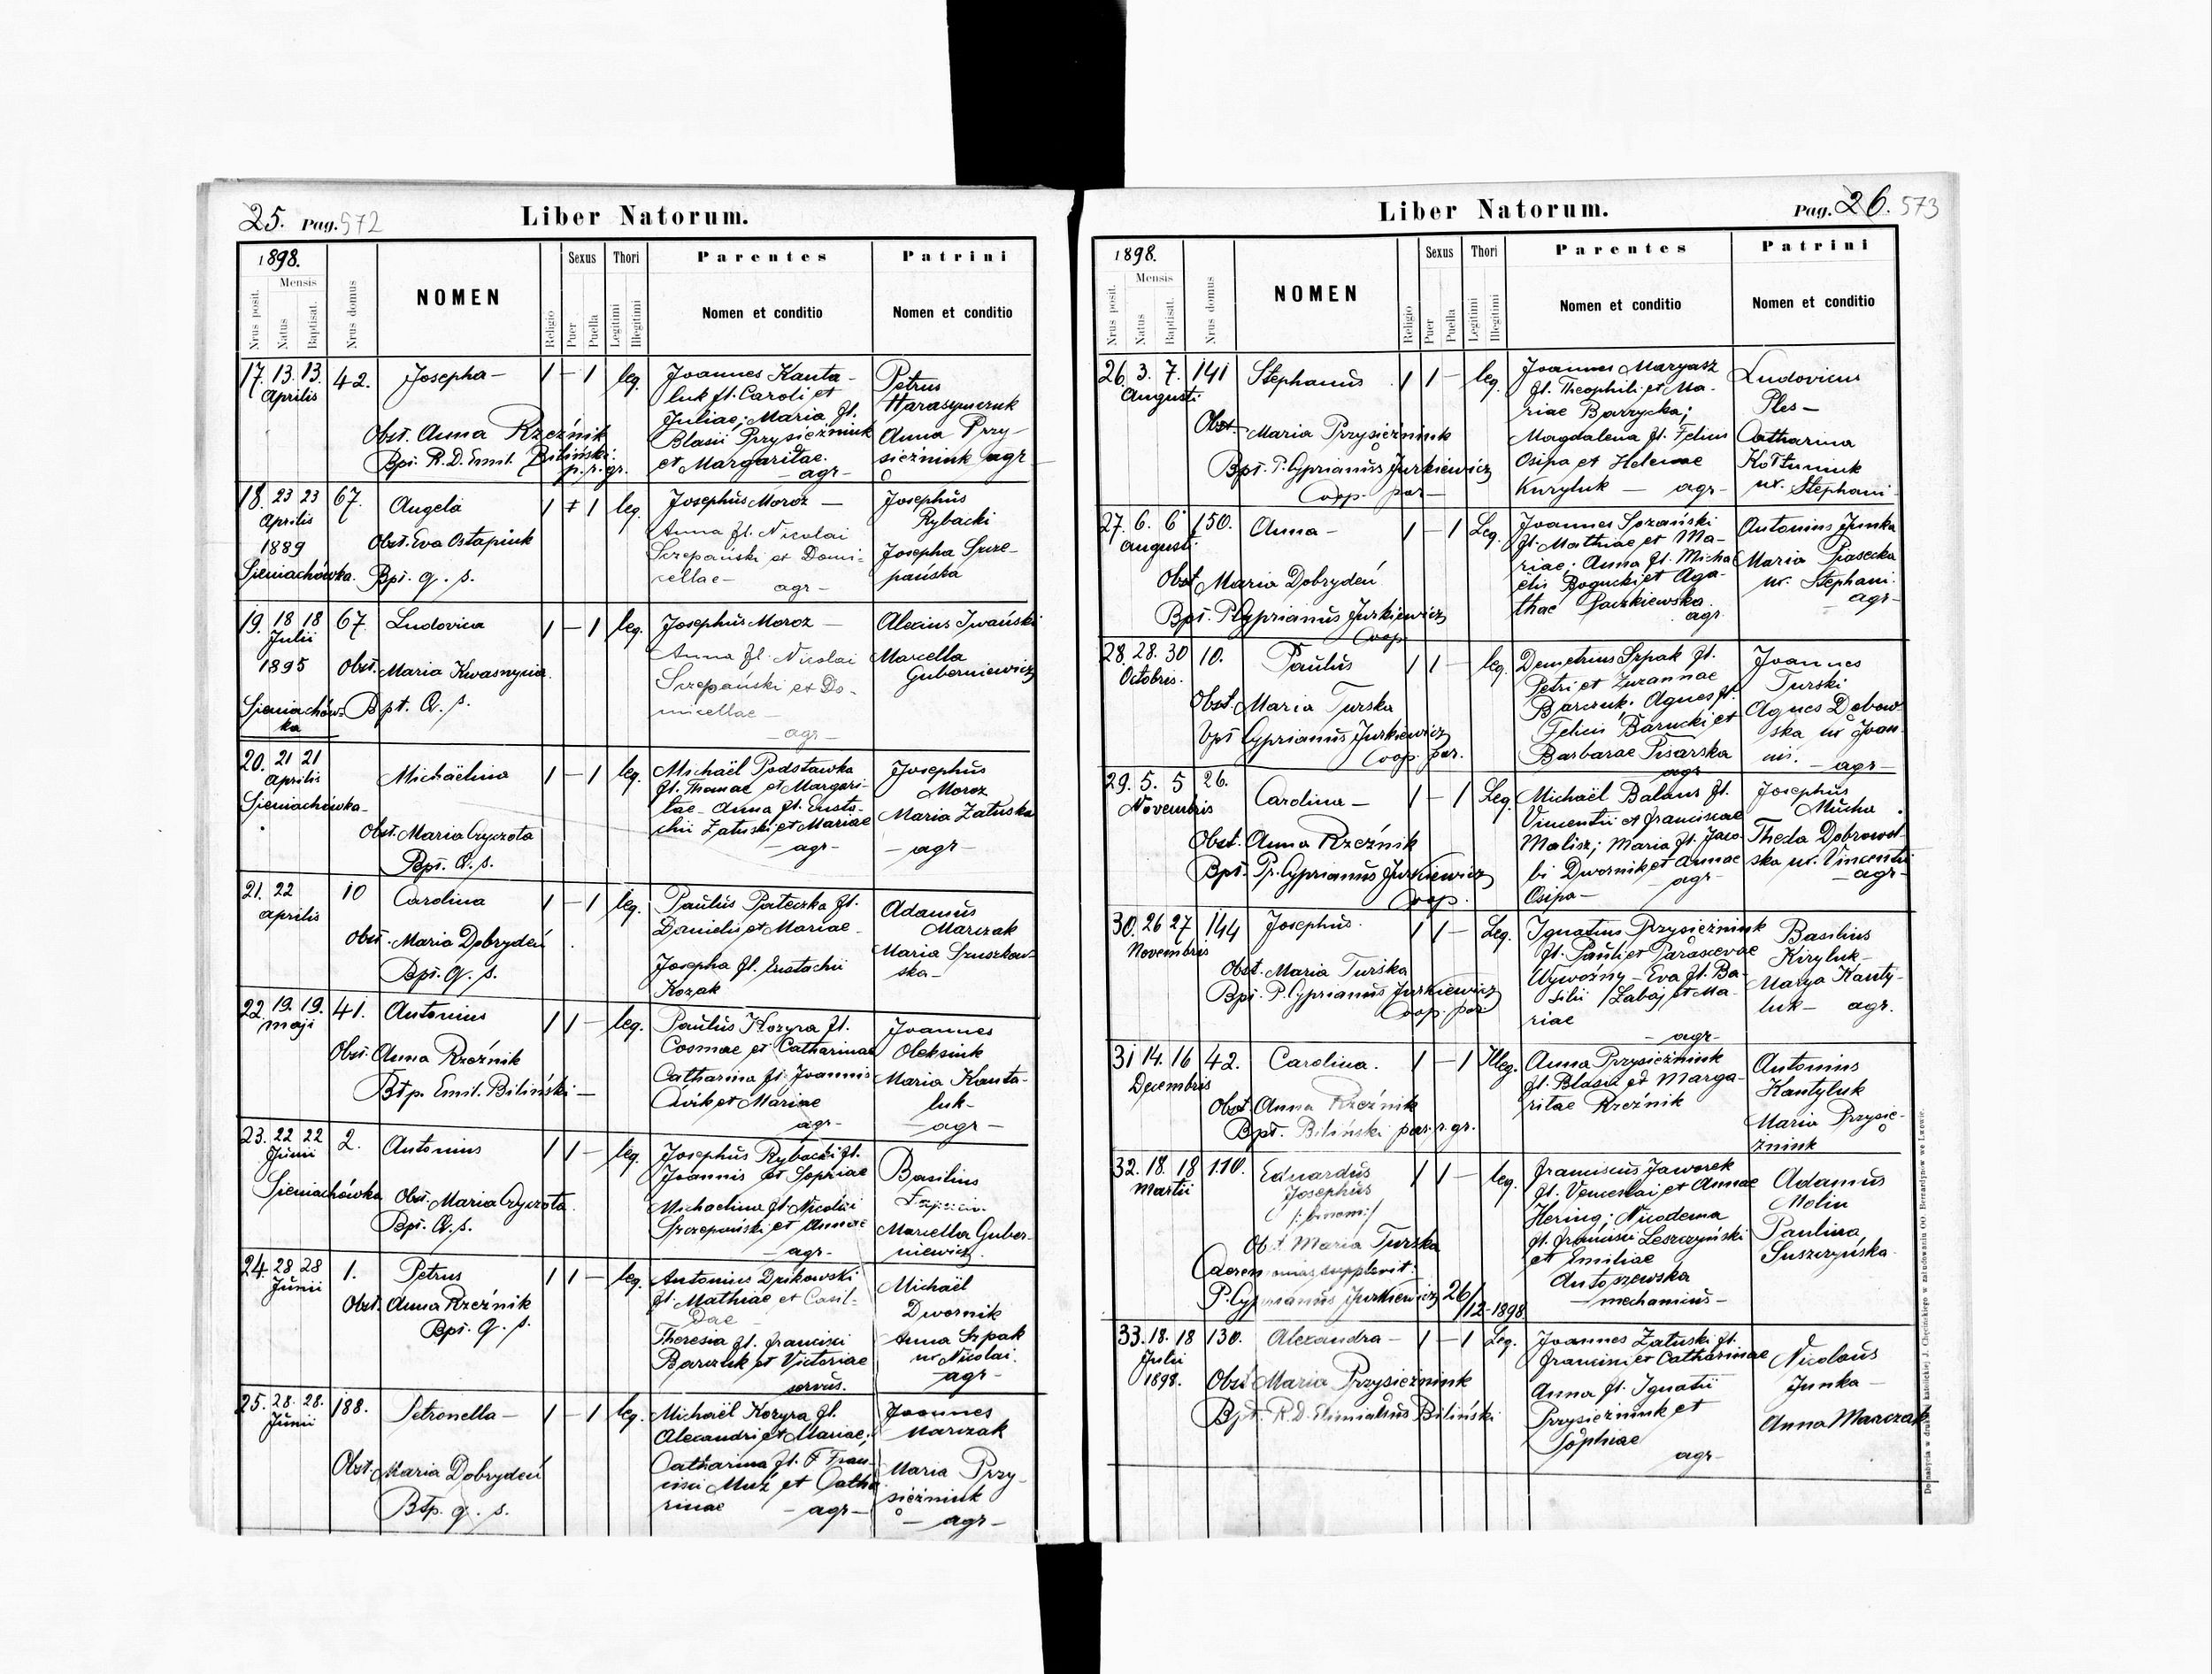 25. Pag. 572
Liber Natorum.
1898.
Mensis
Nrus posit.
Natus
Baptisat.
Nrus domus
NOMEN
Religio
Sexus
Puer
Puella
Thori
Legitimi
Illegitimi
Parentes
Nomen et conditio
Patrini
Nomen et conditio
17. 13. 13. 42. Josepha — 1 — 1 leg.
Aprilis
Obst. Anna Rzeźnik
Bpt. R. D. Emil. Biliński
p. r. gr.
Joannes Kanta-
luk fl. Caroli et
Juliae; Maria fl.
Blasii Przysiężniuk
et Margaritae.
— agr —
Petrus
Harasymczuk
Anna Przy-
siężniuk agr
18. 23 23 67. Angela 1 1 leg.
Aprilis
1889
Sieniachówka.
Obst. Eva Ostapiuk
Bpt. q. s.
Josephus Moroz —
Anna fl. Nicolai
Szczepański et Domi-
cellae —
agr —
Josephus
Rybacki
Josepha Szcze-
pańska
19. 18 18 67. Ludovica 1 — 1 leg.
Julii
1895
Sieniachów-
ka
Obst. Maria Kwasnycia.
Bpt. Q. s.
Josephus Moroz —
Anna fl. Nicolai
Szczepański et Do-
micellae —
— agr —
Alexius Iwański
Marcella
Guberniewicz
20. 21 21 Michaëlina 1 — 1 leg.
Aprilis
Sieniachówka —
Obst. Maria Czyczota
Bpt. Q. s.
Michaël Podstawka
fl. Thomae et Margari-
tae Anna fl. Eusta-
chii Załuski et Mariae
— agr —
Josephus
Moroz
Maria Załuska
— agr —
21. 22 10 Carolina 1 — 1 leg.
aprilis
Obst. Maria Dobrydeń
Bpt. q. s.
Paulus Pateczka fl.
Danielis et Mariae
Josepha fl. Eustachii
Kozak
Adamus
Marczak
Maria Szuszkow-
ska —
22. 19. 19. 41. Antonius 1 1 — leg.
maji
Obst. Anna Rzeźnik
Btp. Emil. Biliński —
Paulus Kozyra fl.
Cosmae et Catharinae
Catharina fl. Joannis
Ćwik et Mariae
agr —
Joannes
Oleksiuk
Maria Kanta-
luk —
— agr —
23. 22 22 2. Antonius 1 1 — leg.
Junii
Sieniachówka
Obst. Maria Czyczota
Bpt. Q. s.
Josephus Rybacki fl.
Joannis et Sophiae
Michaelina fl. Nicolai
Szczepański et Annae
— agr —
Basilius
Marcella Guber-
niewicz.
24. 28 28 1. Petrus 1 1 — leg.
Junii
Obst. Anna Rzeźnik
Bpt. Q. s.
Antonius Dżikowski
fl. Mathiae et Casil-
dae
Theresia fl. Francisci
Barczuk et Victoriae
servus.
Michaël
Dwornik
Anna Szpak
ux Nicolai.
— agr —
25. 28. 28. 188. Petronella — 1 — 1 leg.
Junii
Obst. Maria Dobrydeń
Btp. q. s.
Michaël Kozyra fl.
Alexandri et Mariae;
Catharina fl. F Fran-
cisci Muź et Catha
rinae — agr —
Joannes
Marczak
Maria Przy-
siężniuk
— agr —
Liber Natorum.
Pag. 26. 573
1898.
Mensis
Nrus posit.
Natus
Baptisat.
Nrus domus
NOMEN
Religio
Sexus
Puer
Puella
Thori
Legitimi
Illegitimi
Parentes
Nomen et conditio
Patrini
Nomen et conditio
26. 3. 7. 141 Stephanus 1 1 — leg.
Augusti
Obst. Maria Przysiężniuk
Bpt. P. Cyprianus Jurkiewicz
Coop. par —
Joannes Maryasz
fl. Theophili et Ma-
riae Barzycka;
Magdalena fl. Felicis
Osipa et Helenae
Kuryluk — agr —
Ludovicus
Ples —
Catharina
Kołtuniuk
ux. Stephani
27. 6. 6 150. Anna — 1 — 1 Leg.
augusti
Obst Maria Dobrydeń
Bpt. P Cyprianus Jurkiewicz
Coop
Joannes Spzański
fl. Mathiae et Ma-
riae; Anna fl. Micha
ëlis Bogucki et Aga-
thae Paczkiewska.
agr
Antonius Junka
Maria Piasecka
ux. Stephani.
— agr —
28. 28. 30 10. Paulus 1 1 — leg.
Octobris.
Obst. Maria Turska
Bpt Cyprianus Jurkiewicz
Coop. par.
Demetrius Szpak fl.
Petri et Zuzannae
Barczuk. Agnes fl.
Felicis Barucki et
Barbarae Pisarska
agr
Joannes
Turski
Agnes Dobow
ska ux Joan-
nis. — agr —
29. 5. 5 26. Carolina — 1 — 1 Leg.
Novembris
Obst. Anna Rzeźnik
Bpt. Pr. Cyprianus Jurkiewicz
Coop.
Michaël Balans fl.
Vincentii et Franciscae
Malisz; Maria fl. Jaco-
bi Dwornik et Annae
Osipa — agr
Josephus
Mucha
Theda Dobrowol-
ska ux. Vincentii
— agr —
30. 26 27 144 Josephus. 1 1 — Leg.
Novembris
Obst. Maria Turska
Bpt. P. Cyprianus Jurkiewicz
Coop. par
Ignatius Przysiężniuk
fl. Pauli et Parascevae
Wywoźny — Eva fl. Ba-
silii Łabaj et Ma-
riae
— agr —
Basilius
Kiryluk —
Marya Kanty-
luk — agr.
31 14. 16 42. Carolina. 1 — 1 Illeg.
Decembris
Obst. Anna Rzeźnik
Bpt. Biliński par. r. gr.
Anna Przysiężniuk
fl. Blasii et Marga-
ritae Rzeźnik
Antonius
Kantyluk
Maria Przysię-
żniuk
32. 18. 18 110. Eduardus 1 1 — leg.
Martii
Josephus
/: binom :/
Obst Maria Turska
Caeremonias supplevit:
P. Cyprianus Jurkiewicz 26/
/12-1898
Franciscus Jaworek
fl. Venceslai et Annae
Hering; Nicodema
fl. Francisci Leszczyński
et Emiliae
Antoszewska
— mechanicus —
Adamus
Molin
Paulina
Suszczyńska
33. 18. 18 130. Alexandra — 1 — 1 Leg.
Julii
1898.
Obst Maria Przysiężniuk
Bpt. R. D. Biliński
Joannes Załuski fl.
Francisci et Catharinae
Anna fl. Ignatii
Przysiężniuk et
Sophiae
agr —
Nicolaus
Junka —
Anna Marczak
Do nabycia w drukarni katolickiej J. Chęcińskiego w zabudowaniu OO. Bernardynów we Lwowie.